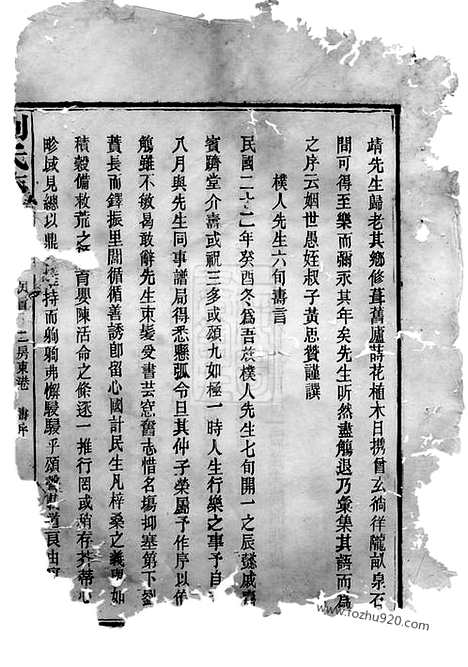 靖先生歸老其鄉修葺舊廬蒔花植木日携曾玄徜徉隴畝泉石
間可得至樂而彌永其年矣先生听然盡觴退乃彙集其語而為
之序云姻世愚姪叔子黃思贊謹譔
樸人先生六旬壽言
民國二十二年癸酉冬為吾族樸人先生七旬開一之辰懿戚
賓躋堂介壽或祝三多或頌九如極一時人生行樂之事予自
八月與先生同事譜局得悉懸弧令旦其仲子榮屬予作序以侑
觴雖不敏曷敢辭先生束髮受書芸窓奮志惜名塲抑塞第下劉
蕡長而鐸振里閭循循善誘即留心國計民生凡梓桑之義 如
積穀備救荒之 育嬰陳活命之條逐一推行罔或稍存芥蒂心
畛域見總以鼎 持而躬躬弗懈駸駸乎頌
劉氏
二房東港 壽序
www.fozhu920.com